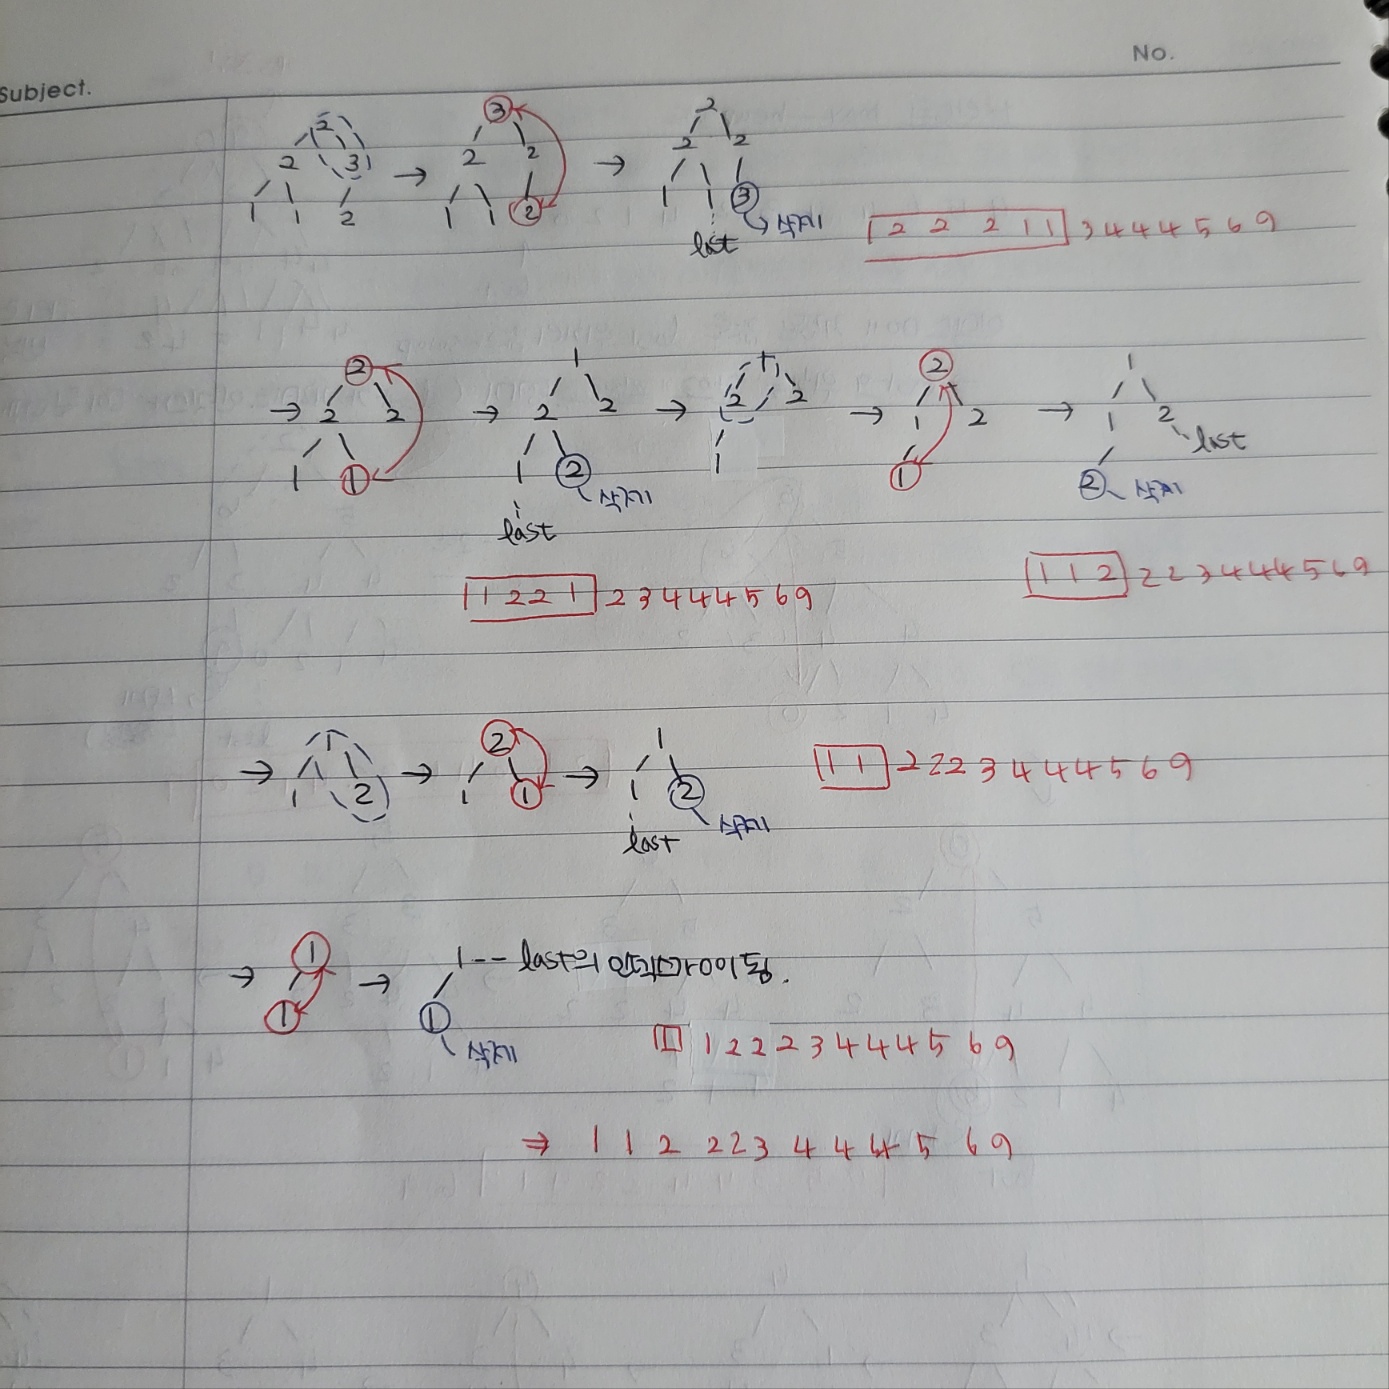 No.
Subject.
2 3 2
2 3 → 2 2 → 2 2
1 1 2 1 1 2 1 1 3 삭제
last
2 2 2 1 1 3 4 4 4 5 6 9
2 1 1 2 1
→ 2 2 → 2 2 → 2 2 → 1 2 → 1 2 last
1 1 1 2 삭제 1 1 2 삭제
last
1 1 2 2 2 3 4 4 4 5 6 9
1 2 2 1 2 3 4 4 4 5 6 9
1 2 1
→ 1 2 → 1 1 → 1 2 삭제
last
1 1 2 2 2 3 4 4 4 5 6 9
→ 1 → 1 -- last의 인덱스가 0이 됨.
1 1 삭제
1 1 2 2 2 3 4 4 4 5 6 9
⇒ 1 1 2 2 2 3 4 4 4 5 6 9